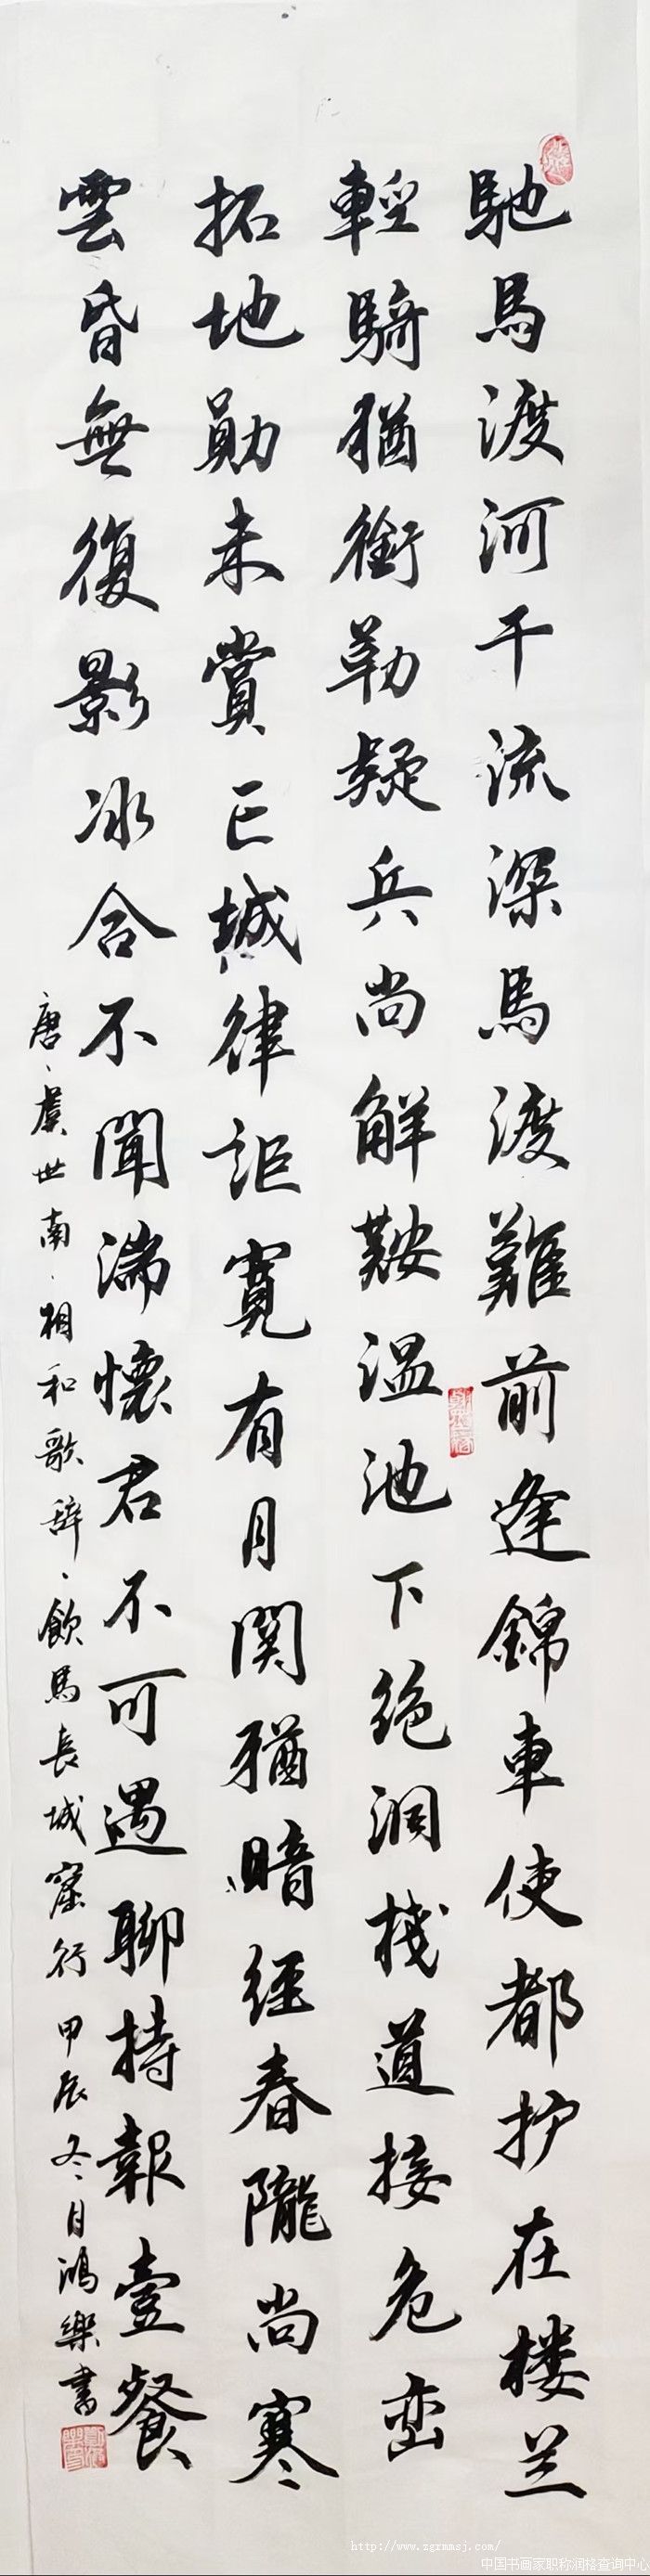 馳馬渡河干流深馬渡難前逢錦車使都护在楼兰
輕騎猶銜勒疑兵尚解鞍温池下絶涧棧道接危峦
拓地勛未賞亡城律詎寬有月関猶暗經春隴尚寒
雲昏無復影冰合不聞湍懷君不可遇聊持報壹餐
唐、虞世南、相和歌辞、飲馬長城窟行 甲辰冬月鴻樂書
http://www.zgrmmsj.com/
中国书画家职称润格查询中心